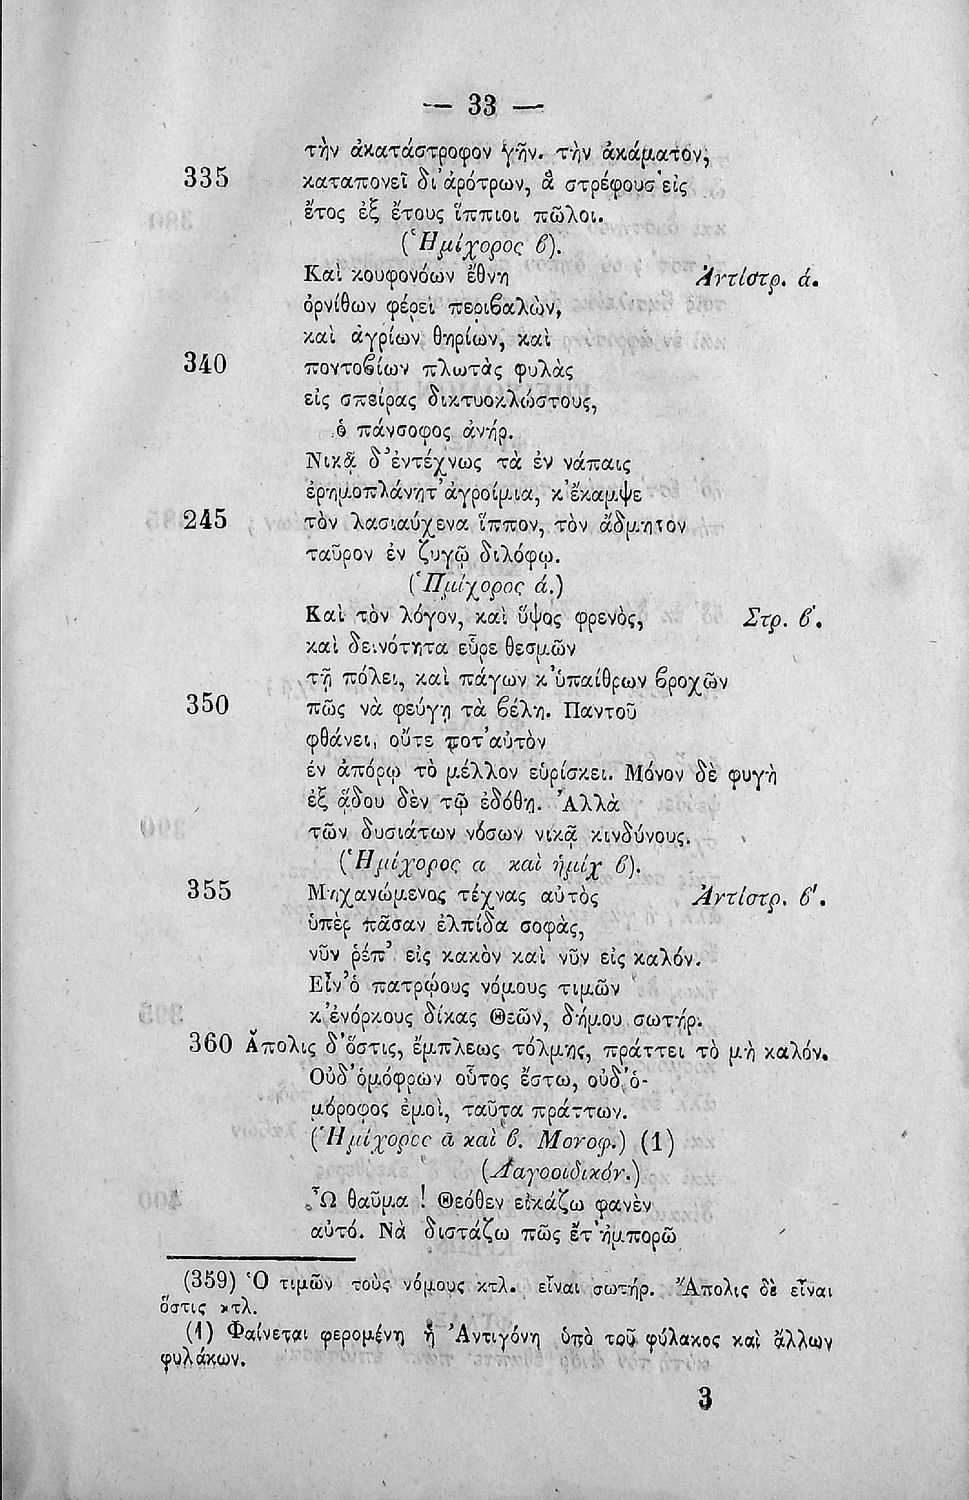 — 33 —
τὴν ἀκατάστροφον γῆν. τὴν ἀκάματον,
335 καταπονεῖ δι᾽ ἀρότρων, ἃ στρέφουσ᾽ εἰς
ἔτος ἐξ ἔτους ἵππιοι πῶλοι.
(Ἡμίχορος ϐ).
Καὶ κουφονόων ἔθνη Ἀντίστρ. ά.
ὀρνίθων φέρει περιϐαλὼν,
καὶ ἀγρίων θηρίων, καὶ
340 ποντοϐίων πλωτὰς φυλὰς
εἰς σπείρας δικτυοκλώστους,
ὁ πάνσοφος ἀνήρ.
Νικᾷ δ᾽ ἐντέχνως τὰ ἐν νάπαις
ἐρημοπλάνητ᾽ ἀγροίμια, κ᾽ ἔκαμψε
245 τὸν λασιαύχενα ἵππον, τὸν ἄδμητον
ταῦρον ἐν ζυγῷ διλόφῳ.
(Ἡμίχορος ά.)
Καὶ τὸν λόγον, καὶ ὕψος φρενὸς, Στρ. ϐ΄.
καὶ δεινότητα εὗρε θεσμῶν
τῇ πόλει, καὶ πάγων κ᾽ ὑπαίθρων ϐροχῶν
350 πῶς νὰ φεύγῃ τὰ ϐέλη. Παντοῦ
φθάνει, οὔτε ποτ᾽ αὐτὸν
ἐν ἀπόρῳ τὸ μέλλον εὑρίσκει. Μόνον δὲ φυγὴ
ἐξ ᾅδου δὲν τῷ ἐδόθη. Ἀλλὰ
τῶν δυσιάτων νόσων νικᾷ κινδύνους.
(Ἡμίχορος α καὶ ἡμίχ ϐ).
355 Μηχανώμενος τέχνας αὐτὸς Ἀντίστρ. ϐ΄.
ὑπὲρ πᾶσαν ἐλπίδα σοφὰς,
νῦν ῥέπ᾽ εἰς κακὸν καὶ νῦν εἰς καλόν.
Εἶν᾽ ὁ πατρῴους νόμους τιμῶν
κ᾽ ἐνόρκους δίκας Θεῶν, δήμου σωτήρ.
360 Ἄπολις δ᾽ ὅστις, ἔμπλεως τόλμης, πράττει τὸ μὴ καλόν.
Οὐδ᾽ ὁμόφρων οὗτος ἔστω, οὐδ᾽ ὁ-
μόροφος ἐμοὶ, ταῦτα πράττων.
(Ἡμίχορος ά καὶ ϐ. Μονοφ.) (1)
(Λαγοοιδικόν.)
Ὢ θαῦμα ! Θεόθεν εἰκάζω φανὲν
αὐτό. Νὰ διστάζω πῶς ἔτ᾽ ἠμπορῶ
(359) Ὁ τιμῶν τοὺς νόμους κτλ. εἶναι σωτήρ. Ἄπολις δὲ εἶναι
ὅστις κτλ.
(1) Φαίνεται φερομένη ἡ Ἀντιγόνη ὑπὸ τοῦ φύλακος καὶ ἄλλων
φυλάκων.
3